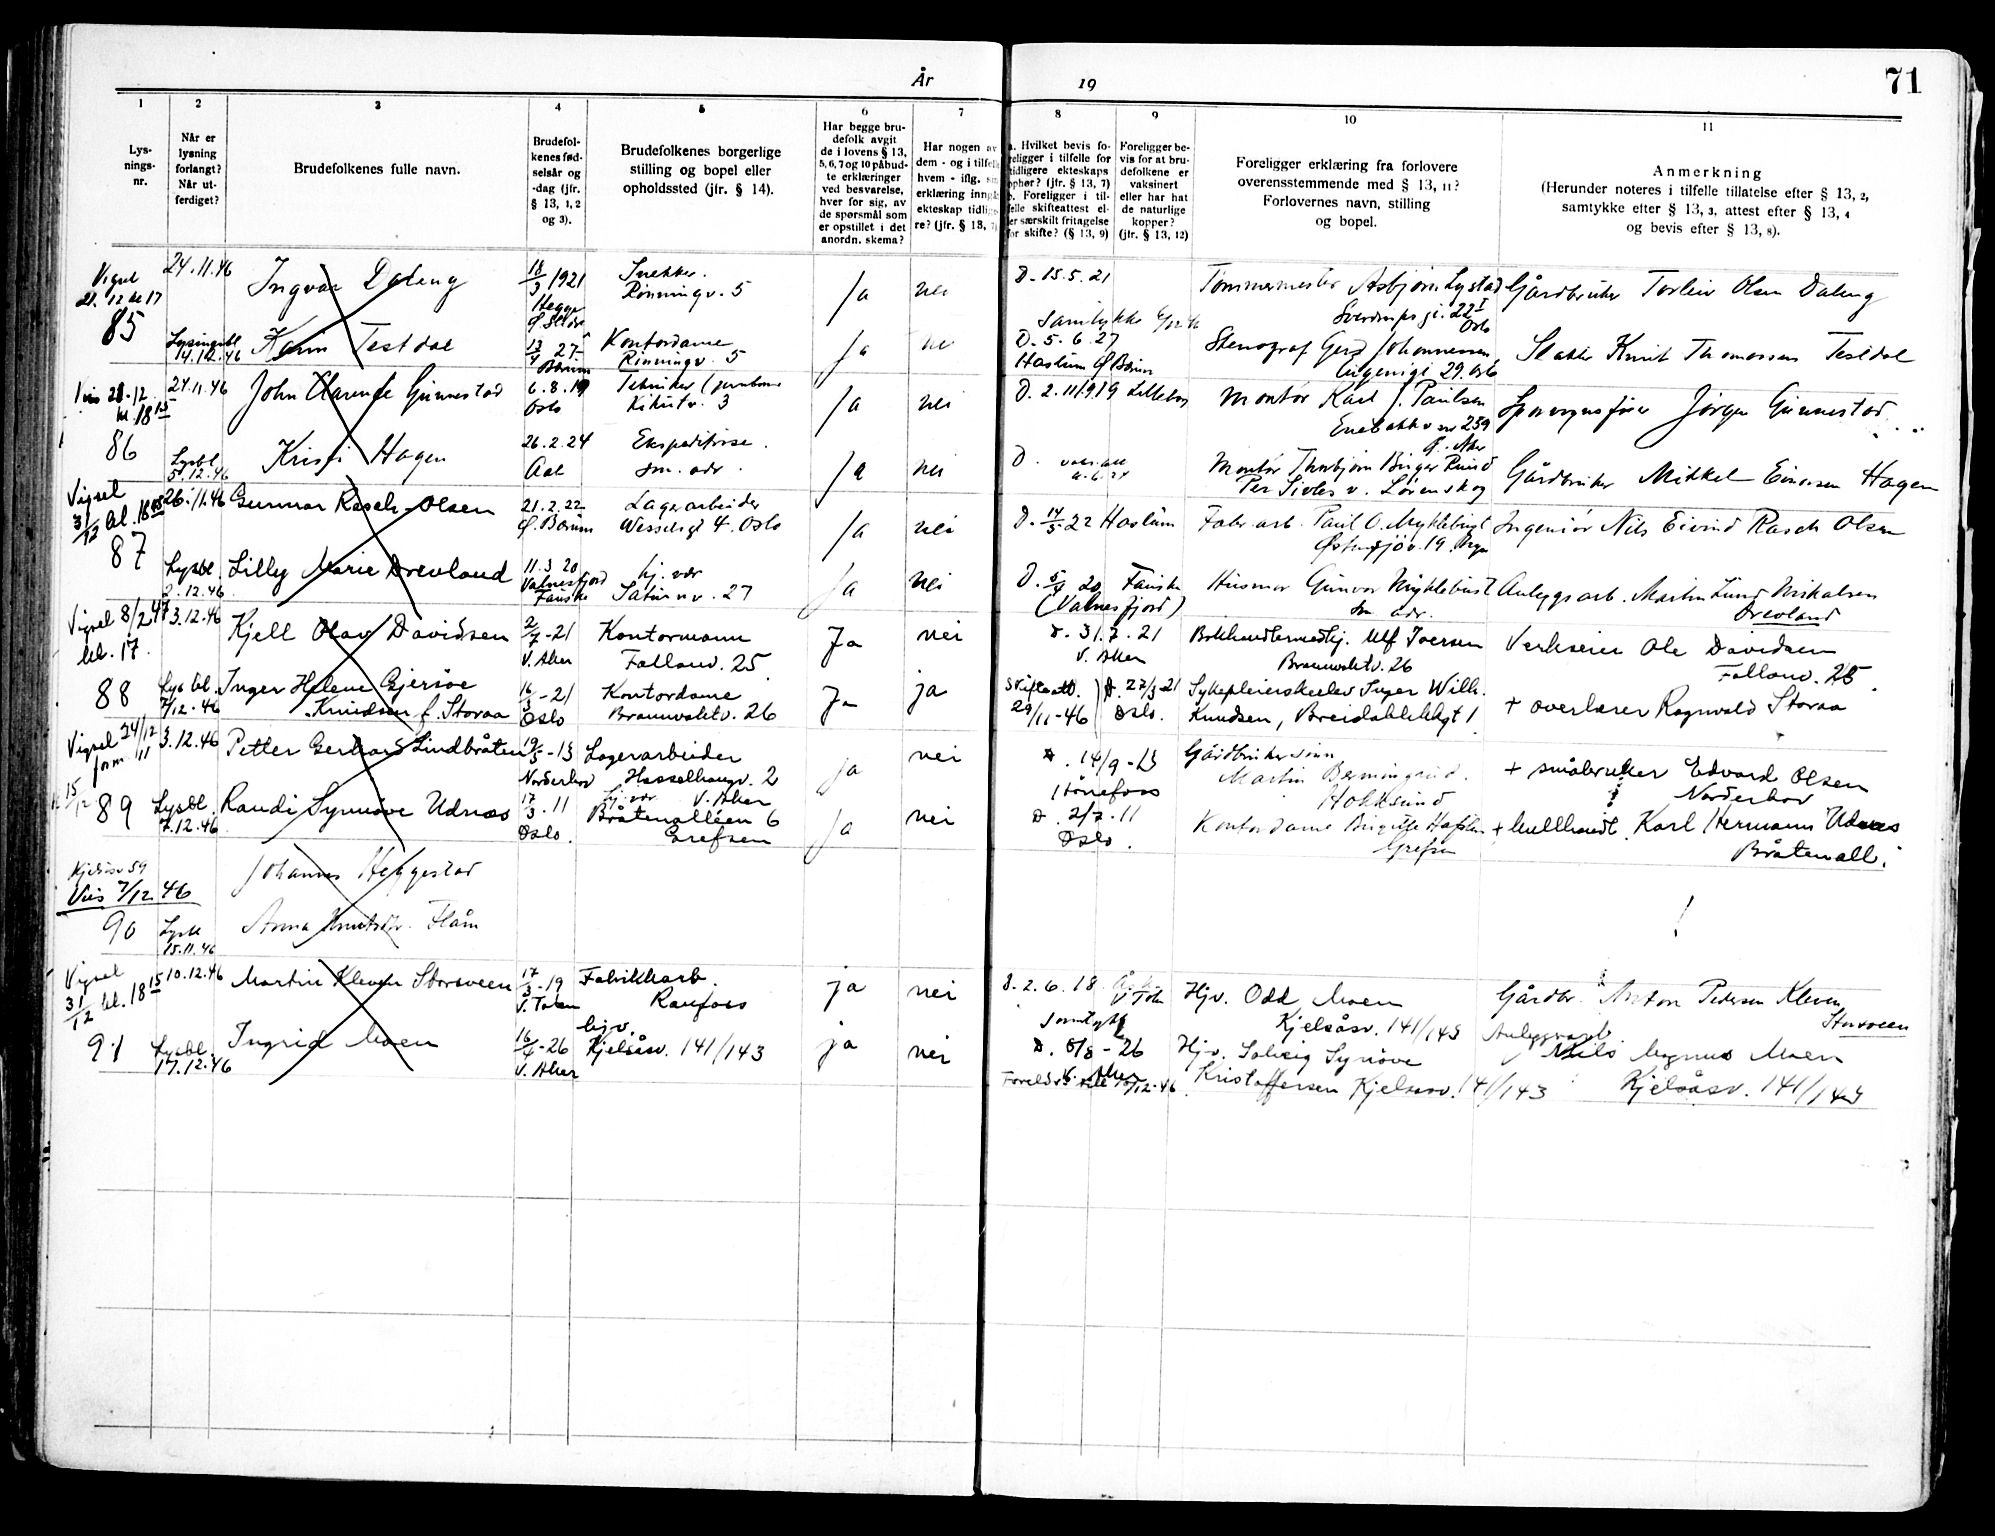 År 19
71
1
Lys-
nings-
nr.
2
Når er
lysning
forlangt?
Når ut-
ferdiget?
3
Brudefolkenes fulle navn.
4
Brudefol-
kenes fød-
selsår og
-dag (jfr.
§ 13, 1, 2
og 3).
5
Brudefolkenes borgerlige
stilling og bopel eller
opholdssted (jfr. § 14).
6
Har begge bru-
defolk avgit
de i lovens § 13,
5, 6, 7 og 10 påbud-
te erklæringer
ved besvarelse,
hver for sig, av
de spørsmål som
er opstillet i det
anordn. skema?
7
Har nogen av
dem - og i tilfelle
hvem - iflg.
erklæring inngå
ekteskap tidlige
re? (jfr. § 13,
8
a. Hvilket bevis fo-
religger i tilfelle for
tidligere ekteskaps
ophør? (jfr. § 13, 7)
b. Foreligger i til-
felle skifteattest el-
ler særskilt fritagelse
for skifte? (§ 13, 9)
9
Foreligger be-
vis for at bru-
defolkene er
vaksinert
eller har hat
de naturlige
kopper?
(jfr. § 13, 12)
10
Foreligger erklæring fra forlovere
overensstemmende med § 13, 11?
Forlovernes navn, stilling
og bopel.
11
Anmerkning
(Herunder noteres i tilfelle tillatelse efter § 13, 2,
samtykke efter § 13, 3, attest efter § 13, 4
og bevis efter § 13, 8).
Vigsel
21.12 kl 17
85
24.11.46
Ingvar Daleng
18/3 1921
Hegge
Ø. Slidre
Snekker.
Rønningv. 5
Ja
nei
D. 15.5.21
Tømmermester Asbjørn Lystad
Sverdrups gt. 22 I
Oslo
Gårdbruker Torleiv Olsen Daleng
Lysningsbl
14.12.46
Karin Testdal
13/4 27
Bærum
Kontordame
Rønningv. 5
Ja
nei
Samtykke
D. 5.6.27
Haslum Ø Bærum
Stenograf Gerd Johannessen,
Eugenigt 29. Oslo
Slakter Knut Thomassen Testdal
Vies 21.12.
kl. 18 15
86
24.11.46
John Clarence Gunnestad
6.8.19
Oslo
Tekniker (jernbane
Kikutv. 3
Ja
nei
D. 2.11.1919 Lilleborg
Montør Karl J. Paulsen
Enebakkv nr 239
Ø. Aker
Sporvognsfører Jørgen Gunnestad
Lysbl
5.12.46
Kristi Hagen
26.2.24
Aal
Ekspeditrise.
sm. adr.
Ja
nei
D.
Montør Thorbjørn Birger Ruud
Per Sivles v. Lørenskog
Gårdbruker Mikkel Einarsen Hagen
Vigsel
31/12 kl. 18 15
87
26.11.46
Gunnar Rasch-Olsen
21.2.22
Ø. Bærum
Lagerarbeider
Wesselsgt 4. Oslo
Ja
nei
D. 14/5 22 Haslum
Fabr. arb. Paul O. Myklebust
Østensjøv. 19. Bryn
Ingeniør Nils Eivind Rasch Olsen
Lysbl.
2.12.46
Lilly Marie Drevland
11.3 20
Valnesfjord
Fauske
hj. vær
Saturnv. 27
Ja
nei
D. 5/4 20 Fauske
(Valnesfjord)
Husmor Gunvor Myklebust
sm adr.
Anleggsarb. Martin Lund Mikalsen
Drevland
Vigsel 8/2 47
kl. 17.
88
3.12.46
Kjell Olav Davidsen
2/7-21
V. Aker
Kontormann
Fallanv. 25
Ja
nei
D. 31.7.21
V. Aker
Bokhandlermedhj. Ulf Iversen
Bramvoldtv. 26
Verkseier Ole Davidsen
Fallanv. 25
Lysbl.
7/12.46
Inger Helene Gjersøe
Knudsen f. Storaa
16/3-21
Oslo
Kontordame
Bramvoldtv. 26
Ja
ja
Skifteatt.
29/11-46
D. 27/3-21
Oslo.
Sykepleierskeelev Inger Wilh.
Knudsen, Breidablikkgt 1
+ overlærer Ragnvald Storaa
Vigsel 24/12
form 11
15/12
89
3.12.46
Petter Gerhard Lindbråten
19/5-13
Norderhov
Lagerarbeider
Hasselhaugv. 2
V. Aker
ja
nei
D. 14/9-13
Hønefoss
Gårdbrukersønn
Martin Bermingrud.
Hokksund
+ småbruker Edvard Olsen
Norderhov
Lysbl.
7.12.46
Randi Synnøve Udnæs
17/3.11
Oslo.
hj. vær
Bråtenalléen 6
Grefsen
Ja
nei
D. 2/7.11
Oslo.
Kontordame Birgitte Hafsten
Grefsen
+ kullhandl. Karl Hermann Udnæs
Bråtenall.
Kjelsåsv 59
Vies 7/12 46
90
Lysbl
15.11.46
Johannes Heggestad
Anna Knutsdtr. Flåm
!
Vigsel
31/12 kl. 18 15
91
10.12.46
Martin Kleven Storsveen
17/3-19
V. Toten
Fabrikkarb.
Raufoss
ja
nei
D. 2.6.18
V. Toten
Hjv. Odd Moen
Kjelsåsv. 141/143
Gårdbr. Anton Pedersen Kleven
Storsveen
Lysbl.
17.12.46
Ingrid Moen
16/4-26
V. Aker
hjv.
Kjelsåsv. 141/143
ja
nei
Samtykk
D. 8/8-26
V. Aker
Hjv. Solveig Synøve
Kristoffersen Kjelsåsv. 141/143
Anleggsarb.
Nils Magnus Moen
Kjelsåsv. 141/143